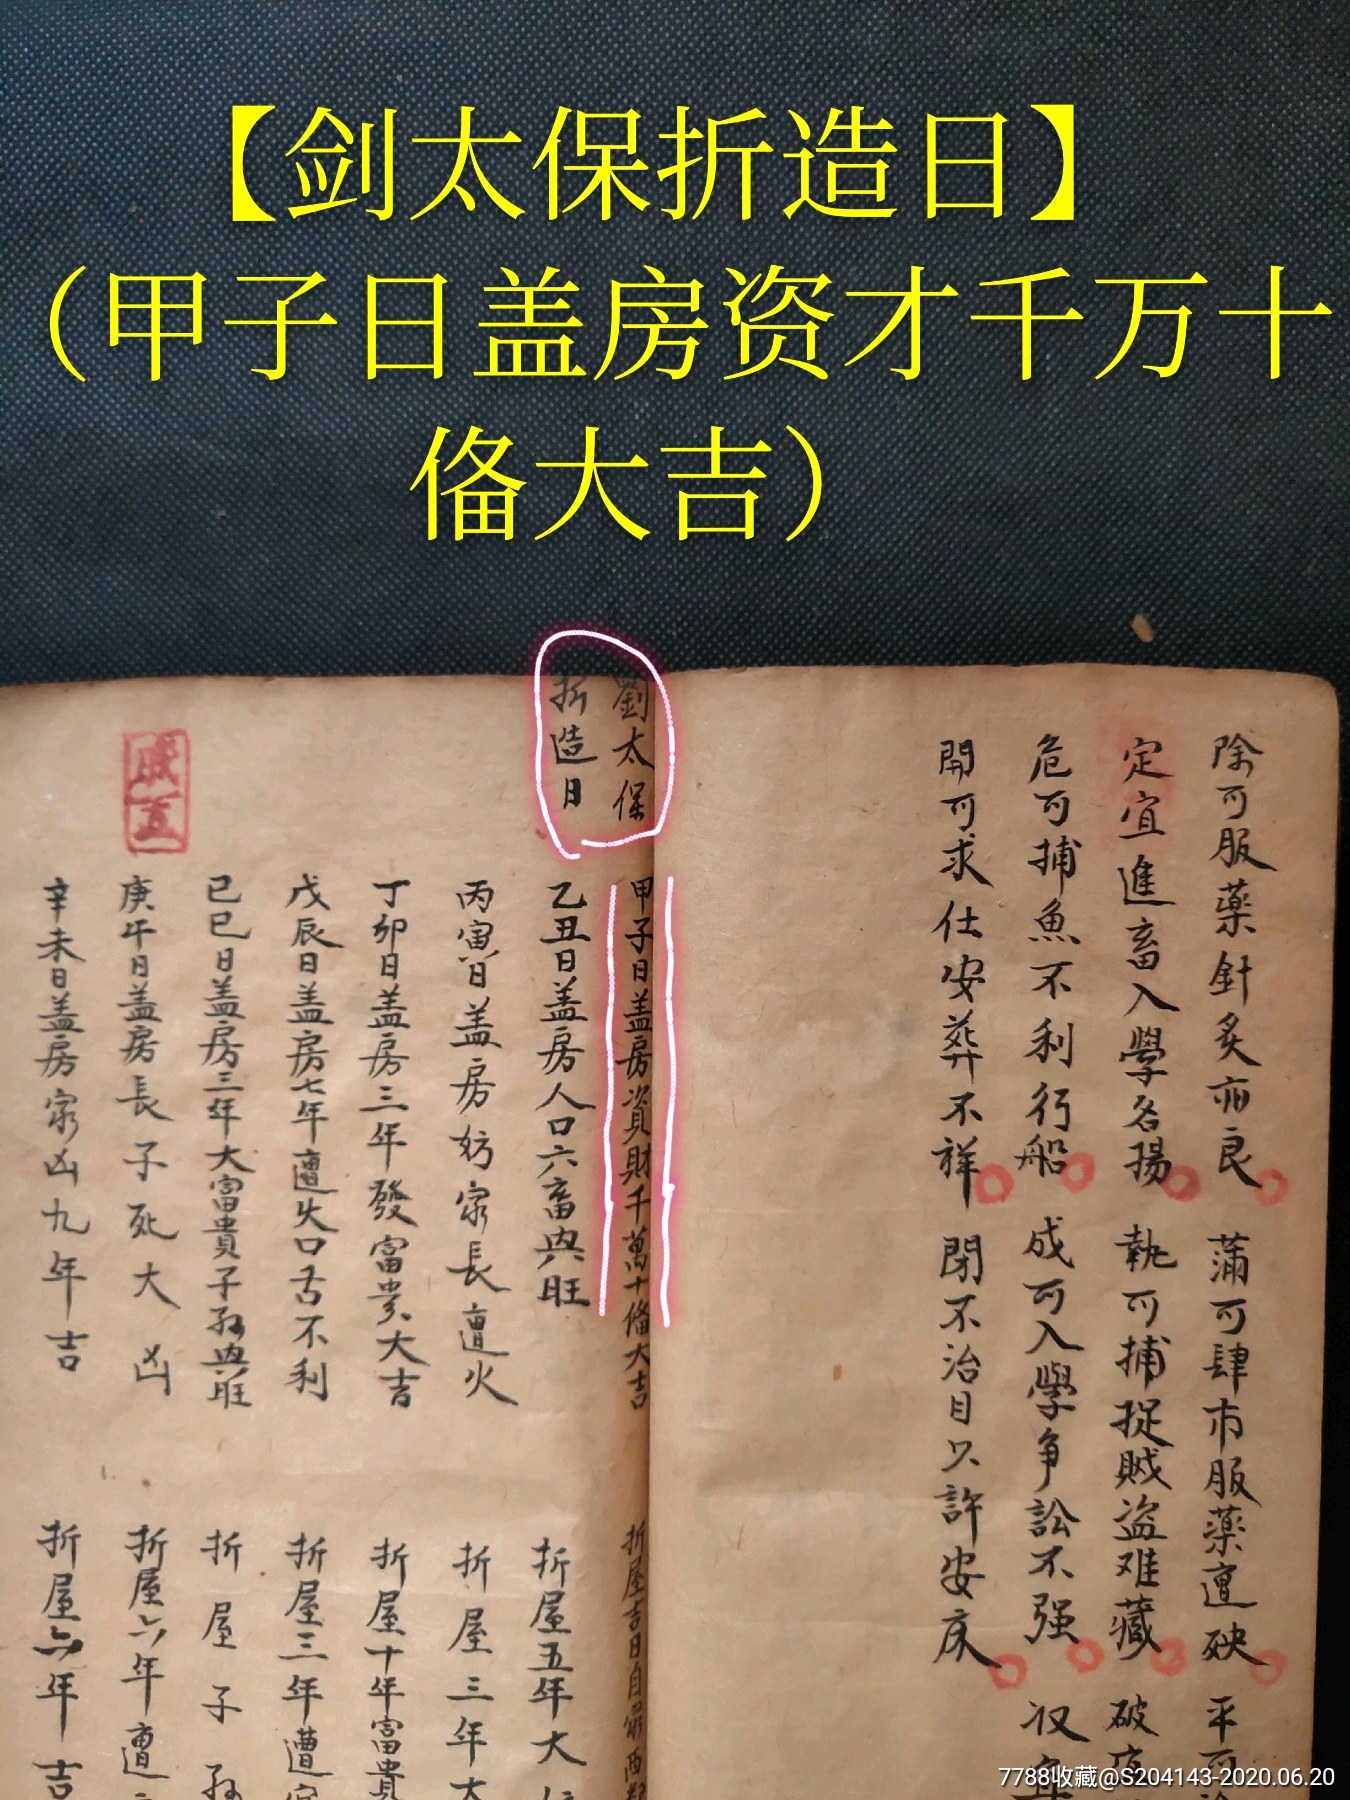 【剑太保折造日】
（甲子日盖房资才千万十
俻大吉）
除可服藥針炙亦良 蒲可肆市服藥遭殃 平可
定宜進畜入學名揚 執可捕捉贼盗难藏 破
危可捕魚不利行船 成可入學争訟不强 収
開可求仕安葬不祥 閉不治目只許安床
劉太保
折造日
甲子日盖房資財千萬十俻大吉 折屋吉日自家
乙丑日盖房人口六畜興旺 折屋五年大
丙寅日盖房妨家長遭火 折屋三年大
丁卯日盖房三年發富貴大吉 折屋十年富貴
戊辰日盖房七年遭火口舌不利 折屋三年遭
已巳日盖房三年大富貴子孫興旺 折屋子孫
庚午日盖房長子死大凶 折屋六年遭
辛未日盖房家凶九年吉 折屋六年吉
7788收藏@S204143-2020.06.20